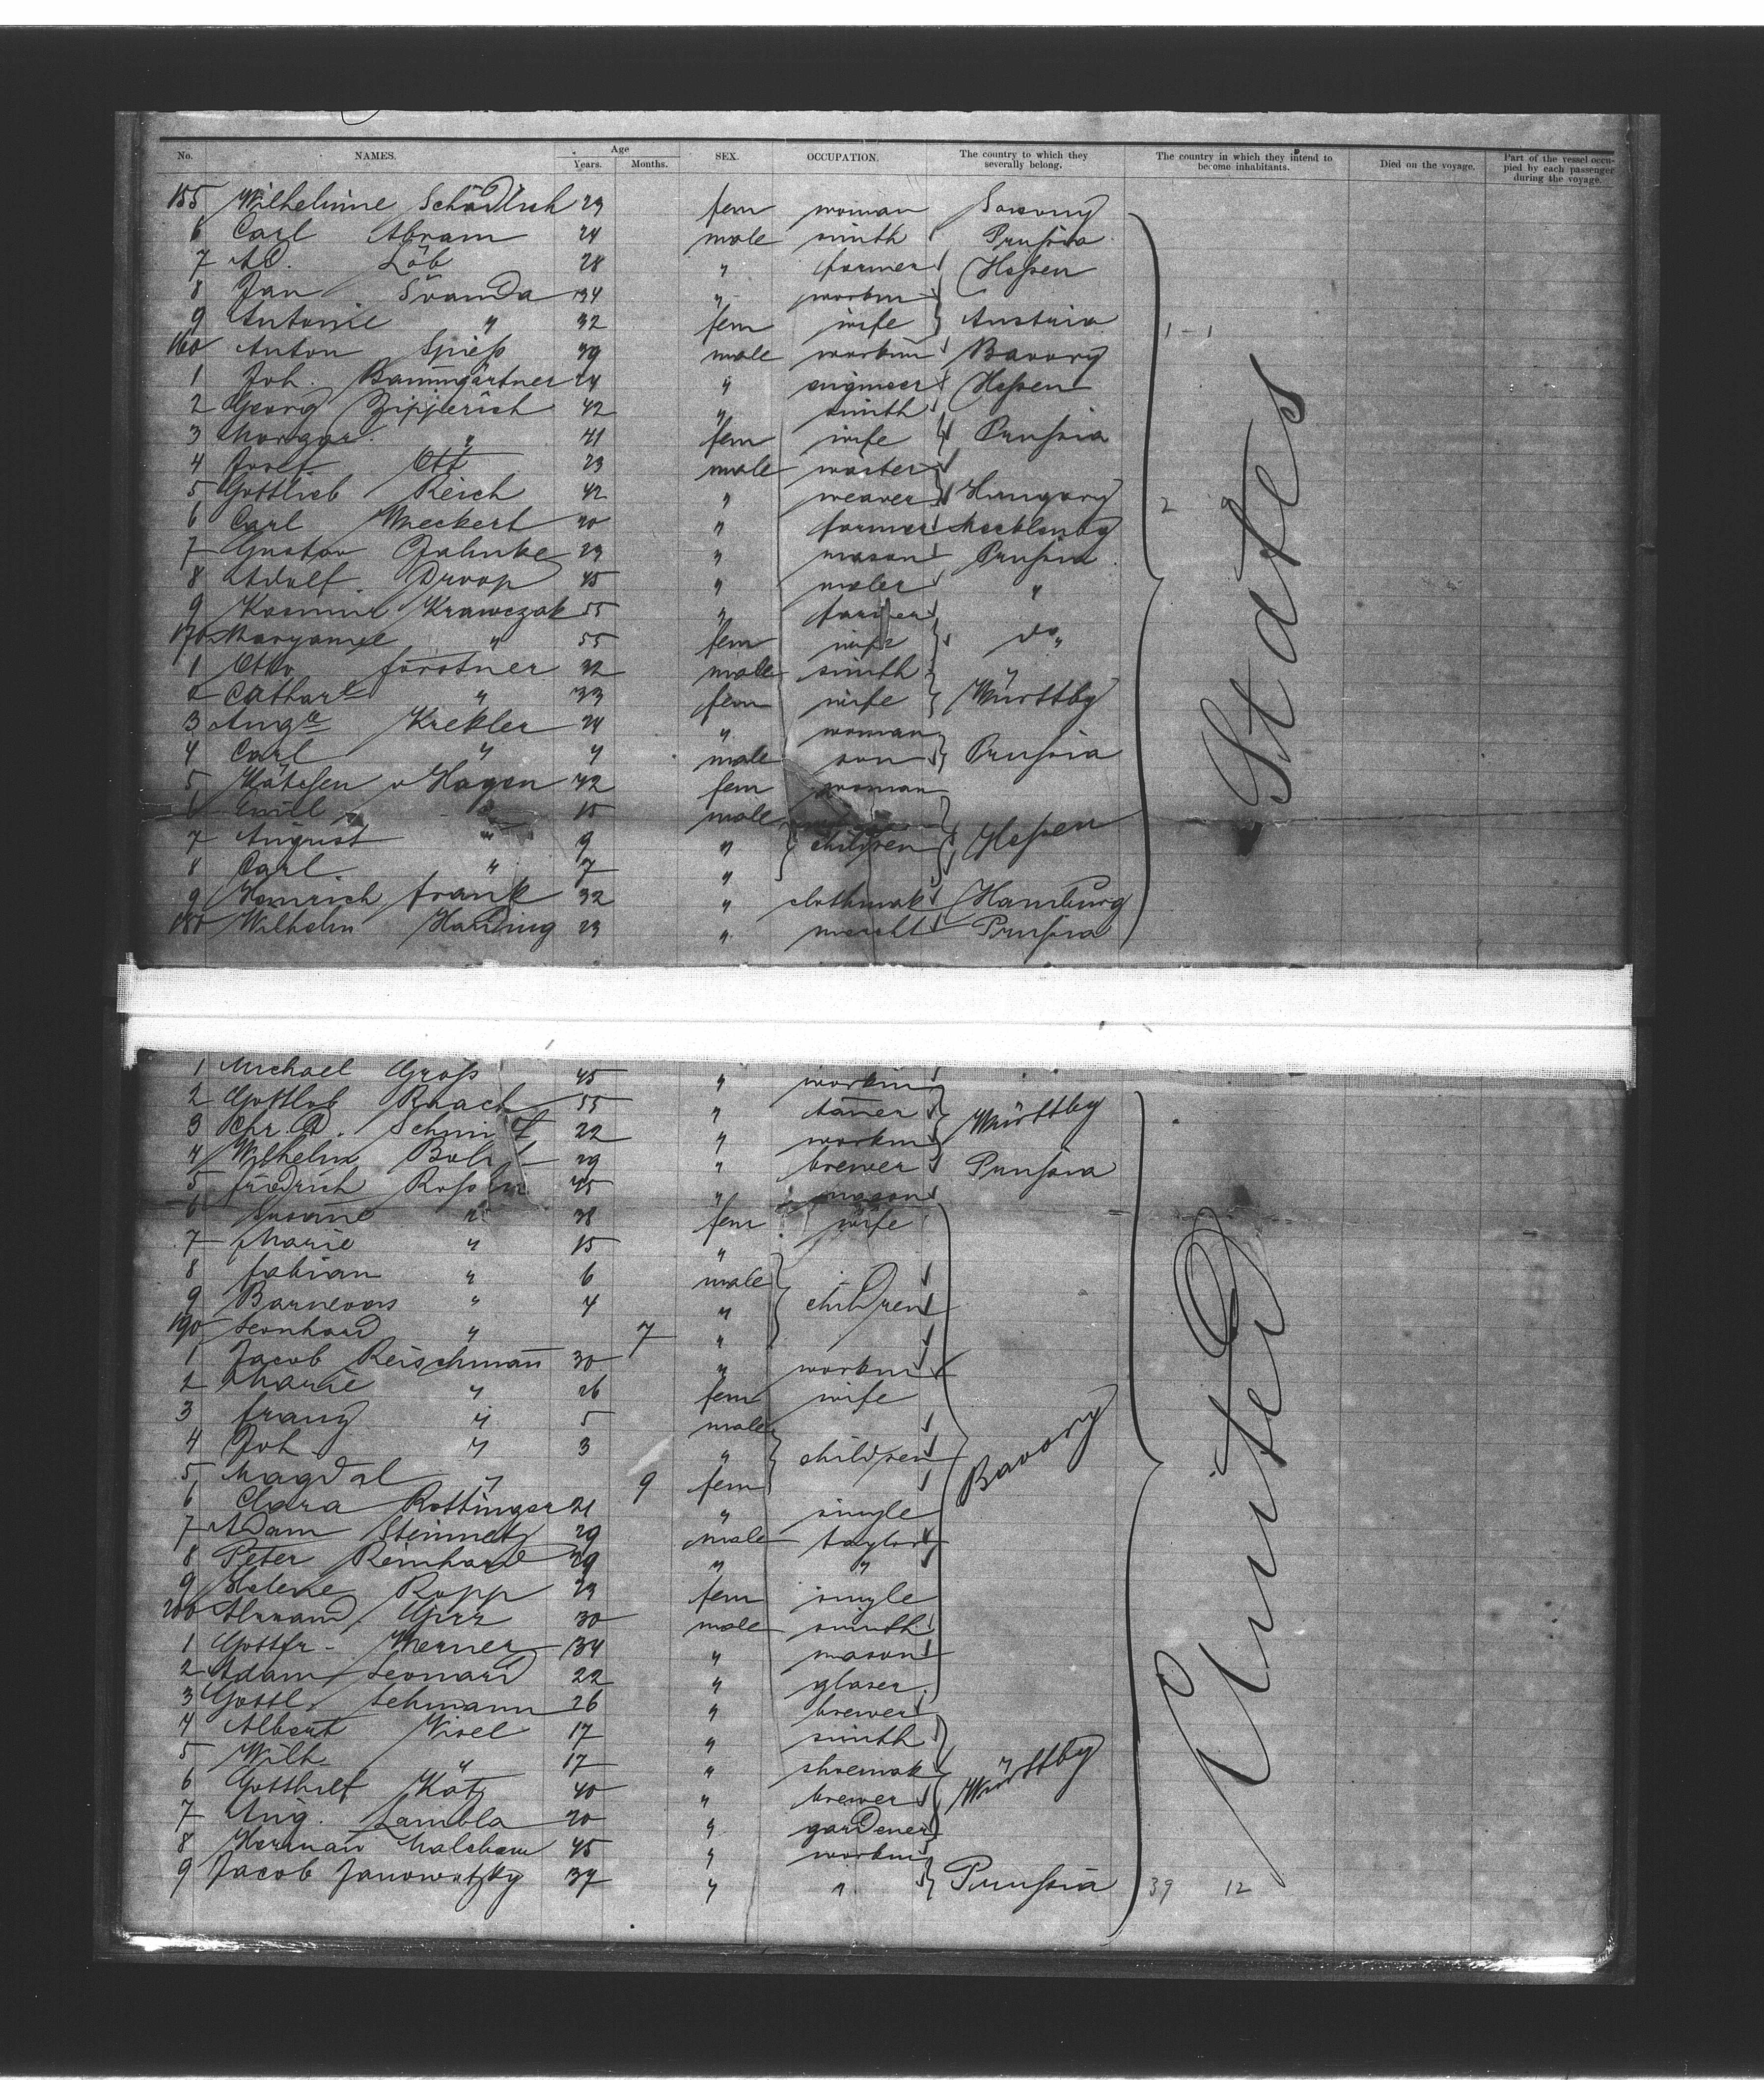 No. NAMES. Age Years. Months. SEX. OCCUPATION. The country to which they severally belong. The country in which they intend to become inhabitants. Died on the voyage. Part of the vessel occupied by each passenger during the voyage.
155 Wilhelmine Schädlich 23 fem woman Saxony
6 Carl Abram 24 male smith Prussia
7 Ad. Löb 28 " farmer Hessen
8 Jan Svanda 34 " workm
9 Antonie " 32 fem wife Austria 1-1
160 Anton Spiess 39 male workm Bavary
1 Joh. Baumgärtner 24 " engineer Hessen
2 Georg Zipperich 42 " smith
3 Margar. " 41 fem wife Prussia
4 Josef Ott 23 male waiter
5 Gottlieb Reich 42 " weaver Hungary 2
6 Carl Weckert 20 " farmer Mecklenbg
7 Gustav Jahnke 23 " mason Prussia
8 Adolf Droop 45 " maler "
9 Kasimir Krawczak 55 " farmer
170 Maryanne " 55 fem wife do "
1 Otto Forstner 32 male smith
2 Cathar " 33 fem wife Württbg
3 Auge Krekler 24 " woman
4 Carl " 4 male son Prussia
5 Kätchen v Hagen 42 fem woman
6 Emil " 15 male
7 August " 9 " children Hessen
8 Carl " 7 "
9 Heinrich Frank 32 " clothmak Hamburg
180 Wilhelm Harding 23 " mercht Prussia
States
1 Michael Gross 45 " workm
2 Gottlob Raach 55 " tanner Württbg
3 Chr. D. Schmidt 22 " workm
4 Wilhelm 29 " brewer Prussia
5 Friedrich 45 " mason
6 Susanne " 38 fem wife
7 Marie " 15 "
8 Fabian " 6 male
9 " 4 " children
190 Leonhard " 7 "
1 Jacob Reischmann 30 " workm
2 Marie " 26 fem wife
3 Franz " 5 male
4 Joh " 3 " children Bavary
5 Magdal " 9 fem
6 Clara Rottinger 21 " single
7 Adam Steinmetz 29 male taylor
8 Peter Reinhard 39 " "
9 Helene Ropp 23 fem single
200 30 male smith
1 Gottfr. Werner 34 " mason
2 Adam Leonard 22 " glaser
3 Gottl. Lehmann 26 " brewer
4 Albert Visel 17 " smith
5 Wilh " 17 " shoemak Württbg
6 Gotthilf Katz 40 " brewer
7 Aug. Lambla 20 " gardener
8 Herman 45 " workm
9 Jacob Janowatzky 37 " " Prussia 39 12
United